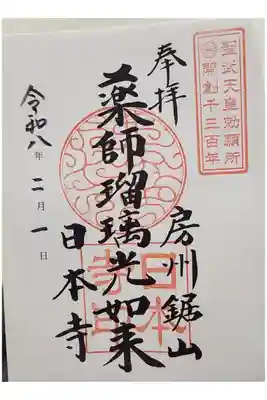 聖武天皇勅願所
開創千三百年
奉拝
房州鋸山
薬師瑠璃光如来
日本寺
令和八年二月一日